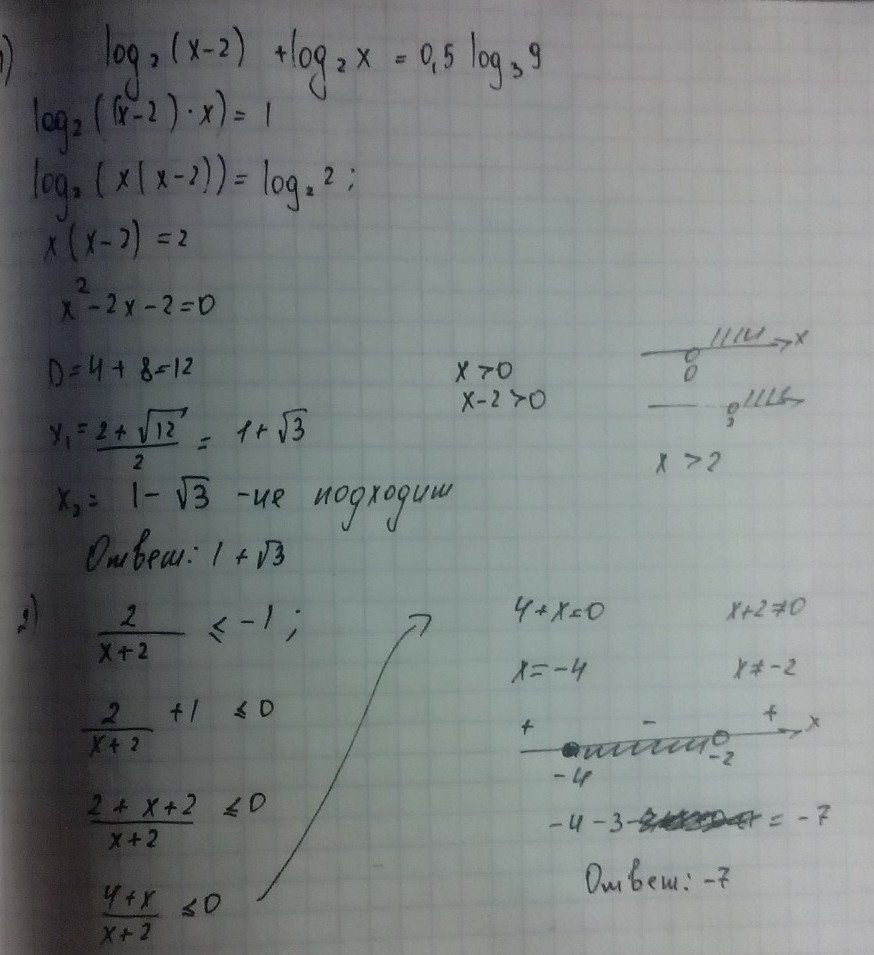 1) log₂(x-2) + log₂x = 0,5 log₃9
log₂((x-2)·x) = 1
log₂(x(x-2)) = log₂2;
x(x-2) = 2
x²-2x-2=0
D=4+8=12
x₁ = (2+√12)/2 = 1+√3
x₂ = 1-√3 -не подходит
Ответ: 1+√3
x>0
x-2>0
x
0
x>2
2) 2/(x+2) ≤ -1;
2/(x+2) +1 ≤ 0
(2+x+2)/(x+2) ≤ 0
(4+x)/(x+2) ≤ 0
4+x=0 x+2≠0
x=-4 x≠-2
+ - + x
-4 -2
-4-3 = -7
Ответ: -7